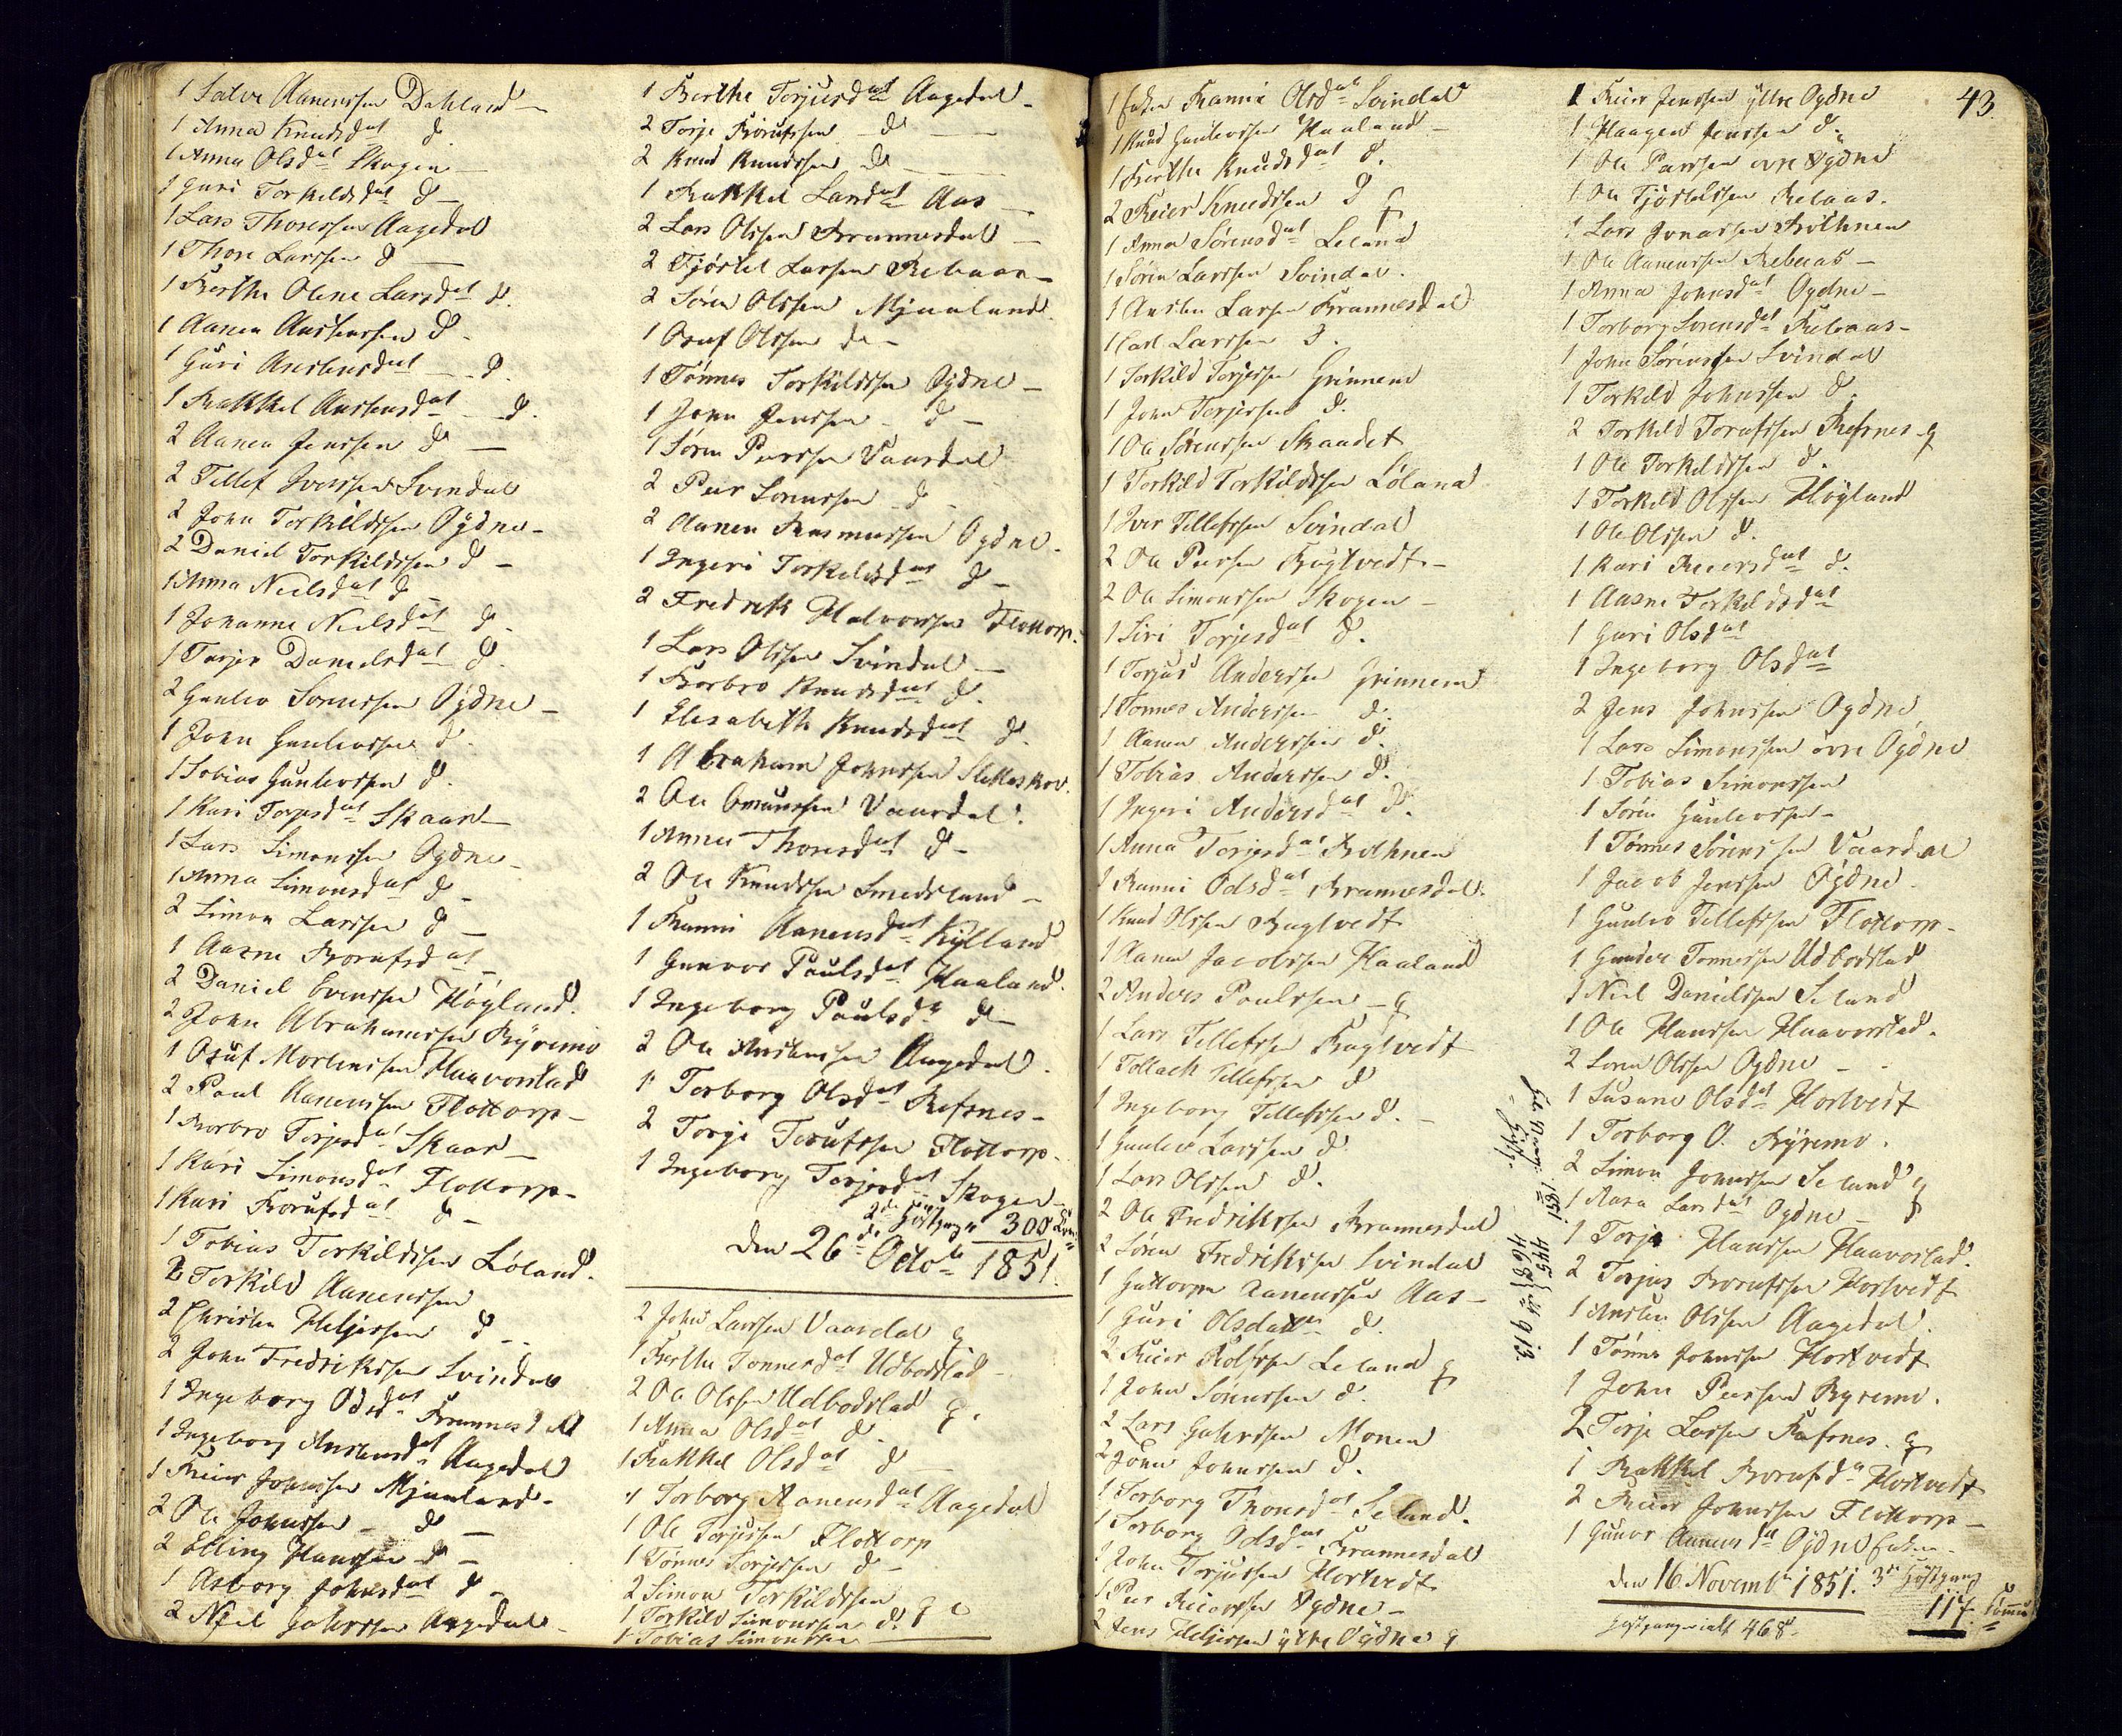 1 Salve Aanenssen Dahland –
1 Anna Knudsdat d
1 Anna Olsdat Skogen –
1 Guri Torkildsdat d –
1 Lars Thoressen Aagedal
1 Thore Larssen d –
1 Berthe Oline Larsdat d.
1 Aanen Anstenssen d.
1 Guri Anstensdat – d.
1 Rakkel Anstensdat – d.
2 Aanen Jenssen d –
2 Tellef Iverssen Svindal
2 John Torkildssen Ögdne –
2 Daniel Torkildssen d –
1 Anna Neilsdat d –
1 Johanne Neilsdat d.
1 Torjer Danielsdat d.
2 Gunlev Sorenssen Ögdne –
1 John Gunlevssen d.
1 Tobias Gunlevssen d.
1 Kari Torjesdat Skaar –
1 Lars Simonssen Ögdne –
1 Anna Simonsdat d –
2 Simon Larssen d –
1 Aasne Brorufsdat –
2 Daniel Evenssen Höyland.
2 John Abrahamssen Ryremo
1 Osuf Mortenssen Haavorstad
2 Paul Aanenssen Flottorp –
1 Borbro Torjesdat Skaar –
1 Kari Simonsdat Flottorp –
1 Kari Brorufsdat d –
1 Tobias Torkildssen Löland.
2 Torkild Aanenssen
2 Christen Heljessen d –
2 John Fredrikssen Svindal
1 Ingeborg Odsdat Brannesdal
1 Ingeborg Anstensdat Aagedal
1 Reier Johnssen Mjunland –
2 Ole Johnssen – d –
2 Elling Hanssen d –
1 Asborg Johnsdat d –
2 Neil Gahrssen Aagedal –
1 Berthe Torjusdat Aagedal –
2 Torje Brorufssen – d –
2 Knud Knudssen d –
1 Rakkel Larsdat Aas –
2 Lars Olssen Brannesdal –
2 Kjöstel Larssen Rebaas –
2 Sören Olssen Mjunland.
1 Osuf Olssen d –
1 Tönnes Torkildssen Ögdne –
1 John Jenssen – d –
1 Soren Peerssen Vaardal
2 Peer Sorenssen – d –
2 Aanen Rasmussen Ogdne –
1 Ingeri Torkildsdat d –
2 Fredrik Halvorssen Flottorp.
1 Lars Olssen Svindal –
1 Borbro Knudsdat d.
1 Elisabeth Knudsdat d.
1 Abraham Johnssen Slettaskov.
2 Ole Omunssen Vaardal.
1 Anne Thoresdat d –
2 Ole Knudssen Smedsland –
1 Ranni Aanensdat Kylland
1 Gunvor Paulsdat Haaland.
1 Ingeborg Paulsdr d –
2 Ole Anstenssen Aagedal.
1 Torborg Olsdat Refsnes –
2 Torje Torufssen Flottorp.
1 Ingeborg Torjesdat Skogen –
2de Höstgang 300 Com:
Den 26de Octobr 1851.
2 John Larssen Vaardal g
1 Berthe Tonnesdat Udbodstad –
2 Ole Olssen Udbodstad g.
1 Anna Olsdat d.
1 Rakkel Olsdat d –
1 Torborg Aanensdat Aagedal
1 Ole Torjussen Flottorp
1 Tönnes Torjessen d –
2 Simon Torkildssen
1 Torkild Simonssen d. g
1 Tobias Simonssen –
1 Enken Ranni Olsdat Svindal
1 Knud Gunlevssen Haaland –
1 Berthe Knudsdat d.
2 Reier Knudssen d g
1 Anna Sörensdat Leland
1 Sören Larssen Svindal.
1 Ansten Larssen Brannesdal
1 Carl Larssen d.
1 Torkild Torjessen Grinnem
1 John Torjessen d.
1 Ole Sörenssen Skaadet
1 Torkild Torkildssen Löland
1 Iver Tellefssen Svindal
2 Ole Peerssen Bugtvedt –
2 Ole Simonssen Skogen –
1 Siri Torjesdat d.
1 Torjus Anderssen Grinnem
1 Tönnes Anderssen d.
1 Aanen Anderssen d.
1 Tobias Anderssen d.
1 Ingeri Andersdat d.
1 Anna Torjesdat Bothnen
1 Ranni Odsdat Brannesdal.
1 Knud Olssen Bugtvedt
1 Aanen Jacobssen Haaland
2 Anders Paulssen – g
1 Lars Tellefssen Bugtvedt
1 Tollach Tellefssen d
1 Ingeborg Tellefssen d. –
1 Gunlev Larssen d
1 Lars Olssen d.
2 Ole Fredrikssen Brannesdal
2 Sören Fredrikssen Svindal
1 Guttorm Aanenssen Aas –
1 Guri Olsdatter d.
2 Reier Rolfssen Leland g
1 John Sörenssen d.
2 Lars Gahrssen Monen
2 John Johnssen d.
1 Torborg Thoresdat Seland.
1 Torborg Odsdat Brannesdal
1 John Torjussen Hortvedt
1 Peer Reierssen Ögdne –
2 Jens Heljessen ytre Ögdne g
1851 445
468 913.
43.
1 Reier Jenssen yttre Ogdne
1 Haagen Jenssen d.
1 Ole Peerssen øvre Ögdne
1 Ole Kjöstelssen Rebaas.
1 Lars Jonassen Bothnen
1 Ole Aanenssen Rebaas –
1 Anna Johnsdat Ogdne –
1 Torborg Sorensdat Rebaas –
1 John Sörenssen Svindal
1 Torkild Johnssen d.
2 Torkild Torufssen Refsnes g
1 Ole Torkildssen d.
1 Torkild Olssen Höyland
1 Ole Olssen d.
1 Kari Reiersdat d.
1 Aasne Torkildsdat
1 Guri Olsdat
1 Ingeborg Olsdat
2 Jens Johnssen Ogdne
1 Lars Simonssen øvre Ogdne
1 Tobias Simonssen
1 Sören Gunlevssen –
1 Tönnes Sörenssen Vaardal
1 Jacob Jenssen Ögdne –
1 Gunlev Tellefssen Flottorp –
1 Gunder Tonnessen Udbodstad
1 Neil Danielssen Seland
1 Ole Hanssen Haavorstad.
2 Soren Olssen Ogdne –
1 Susane Olsdat Hortvedt
1 Torborg O. Ryremo.
2 Simon Johnssen Seland g
1 Aasa Larsdat Ogdne –
1 Torje Hanssen Haavorstad.
2 Torjus Brorufssen Hortvedt
1 Ansten Olssen Aagedal.
1 Tönnes Johnssen Hortvedt
1 John Peerssen Ryremo.
2 Torje Larssen Refsnes. g
1 Rakkel Brorufsdr Hortvedt
2 Reier Johnssen Flottorp –
1 Gunvor Aanensdat Ogdne Enken –
Den 16 Novembr 1851. 3die Höstgang
117 Comm:
Höstgang ialt 468.